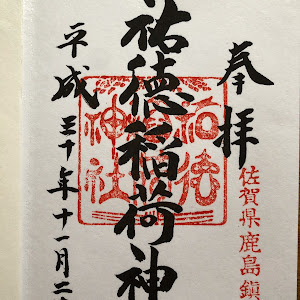 奉拝
佐賀県鹿島鎮
祐徳稲荷神
祐徳
神社
平成三十年十一月二